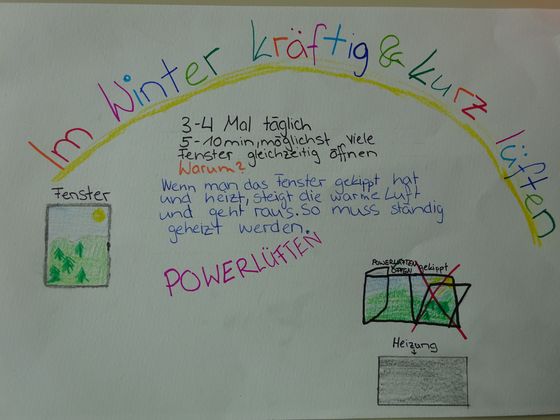 Im Winter kräftig & kurz lüften
3-4 Mal täglich
5-10min, möglichst viele
Fenster gleichzeitig öffnen
Warum?
Wenn man das Fenster gekippt hat
und heizt, steigt die warme Luft
und geht raus. So muss ständig
geheizt werden.
POWERLÜFTEN
Fenster
POWERLÜFTEN gekippt
OFFEN
Heizung